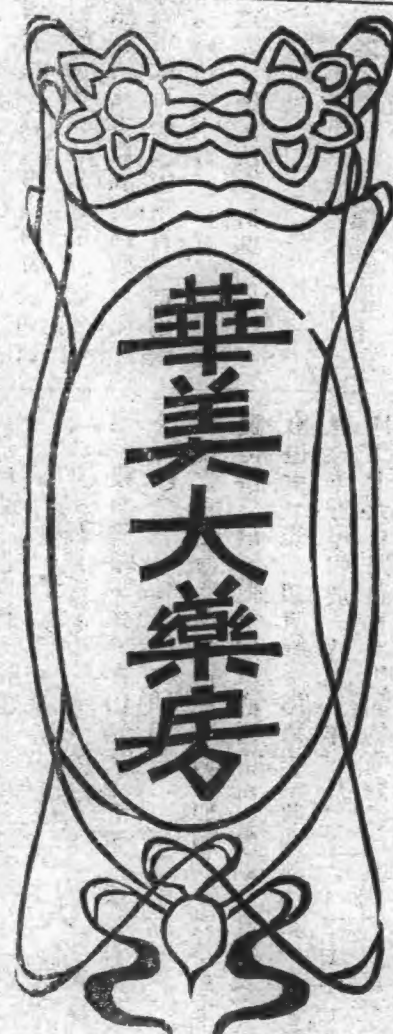 華美大藥房